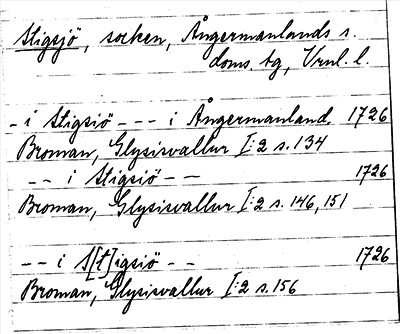 Stigsjö, socken, Ångermanlands s.
doms. tg, Vrnl. l.
- i Stigsiö - - - i Ångermanland. 1726
Broman, Glysisvallur I:2 s. 134
- - i Stigsiö - - 1726
Broman, Glysisvallur I:2 s. 146, 151
- - i S[t]igsiö - - 1726
Broman, Glysisvallur I:2 s. 156